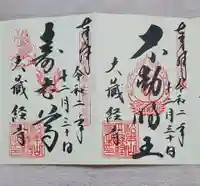 奉拝 令和二年
十二月三十日
不動明王
大蔵経寺
奉拝 令和二年
十二月三十日
寿老尊
大蔵経寺